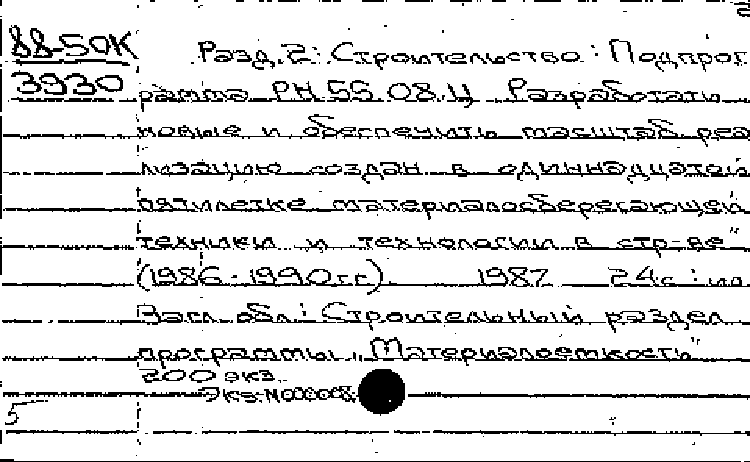 88-50К
3930
Разд. 2: Строительство: Подпрог
рамма РН.55.08.Ц Разработать
новые и обеспечить масштаб. реа
лизацию создан. в одиннадцатой
пятилетке материалосберегающей
техники и технологии в стр-ве"
(1986-1990 гг.). 1987 24с: ил
Загл. обл.: Строительный раздел
программы „Материалоемкость"
200 экз.
Экз. N000008
5